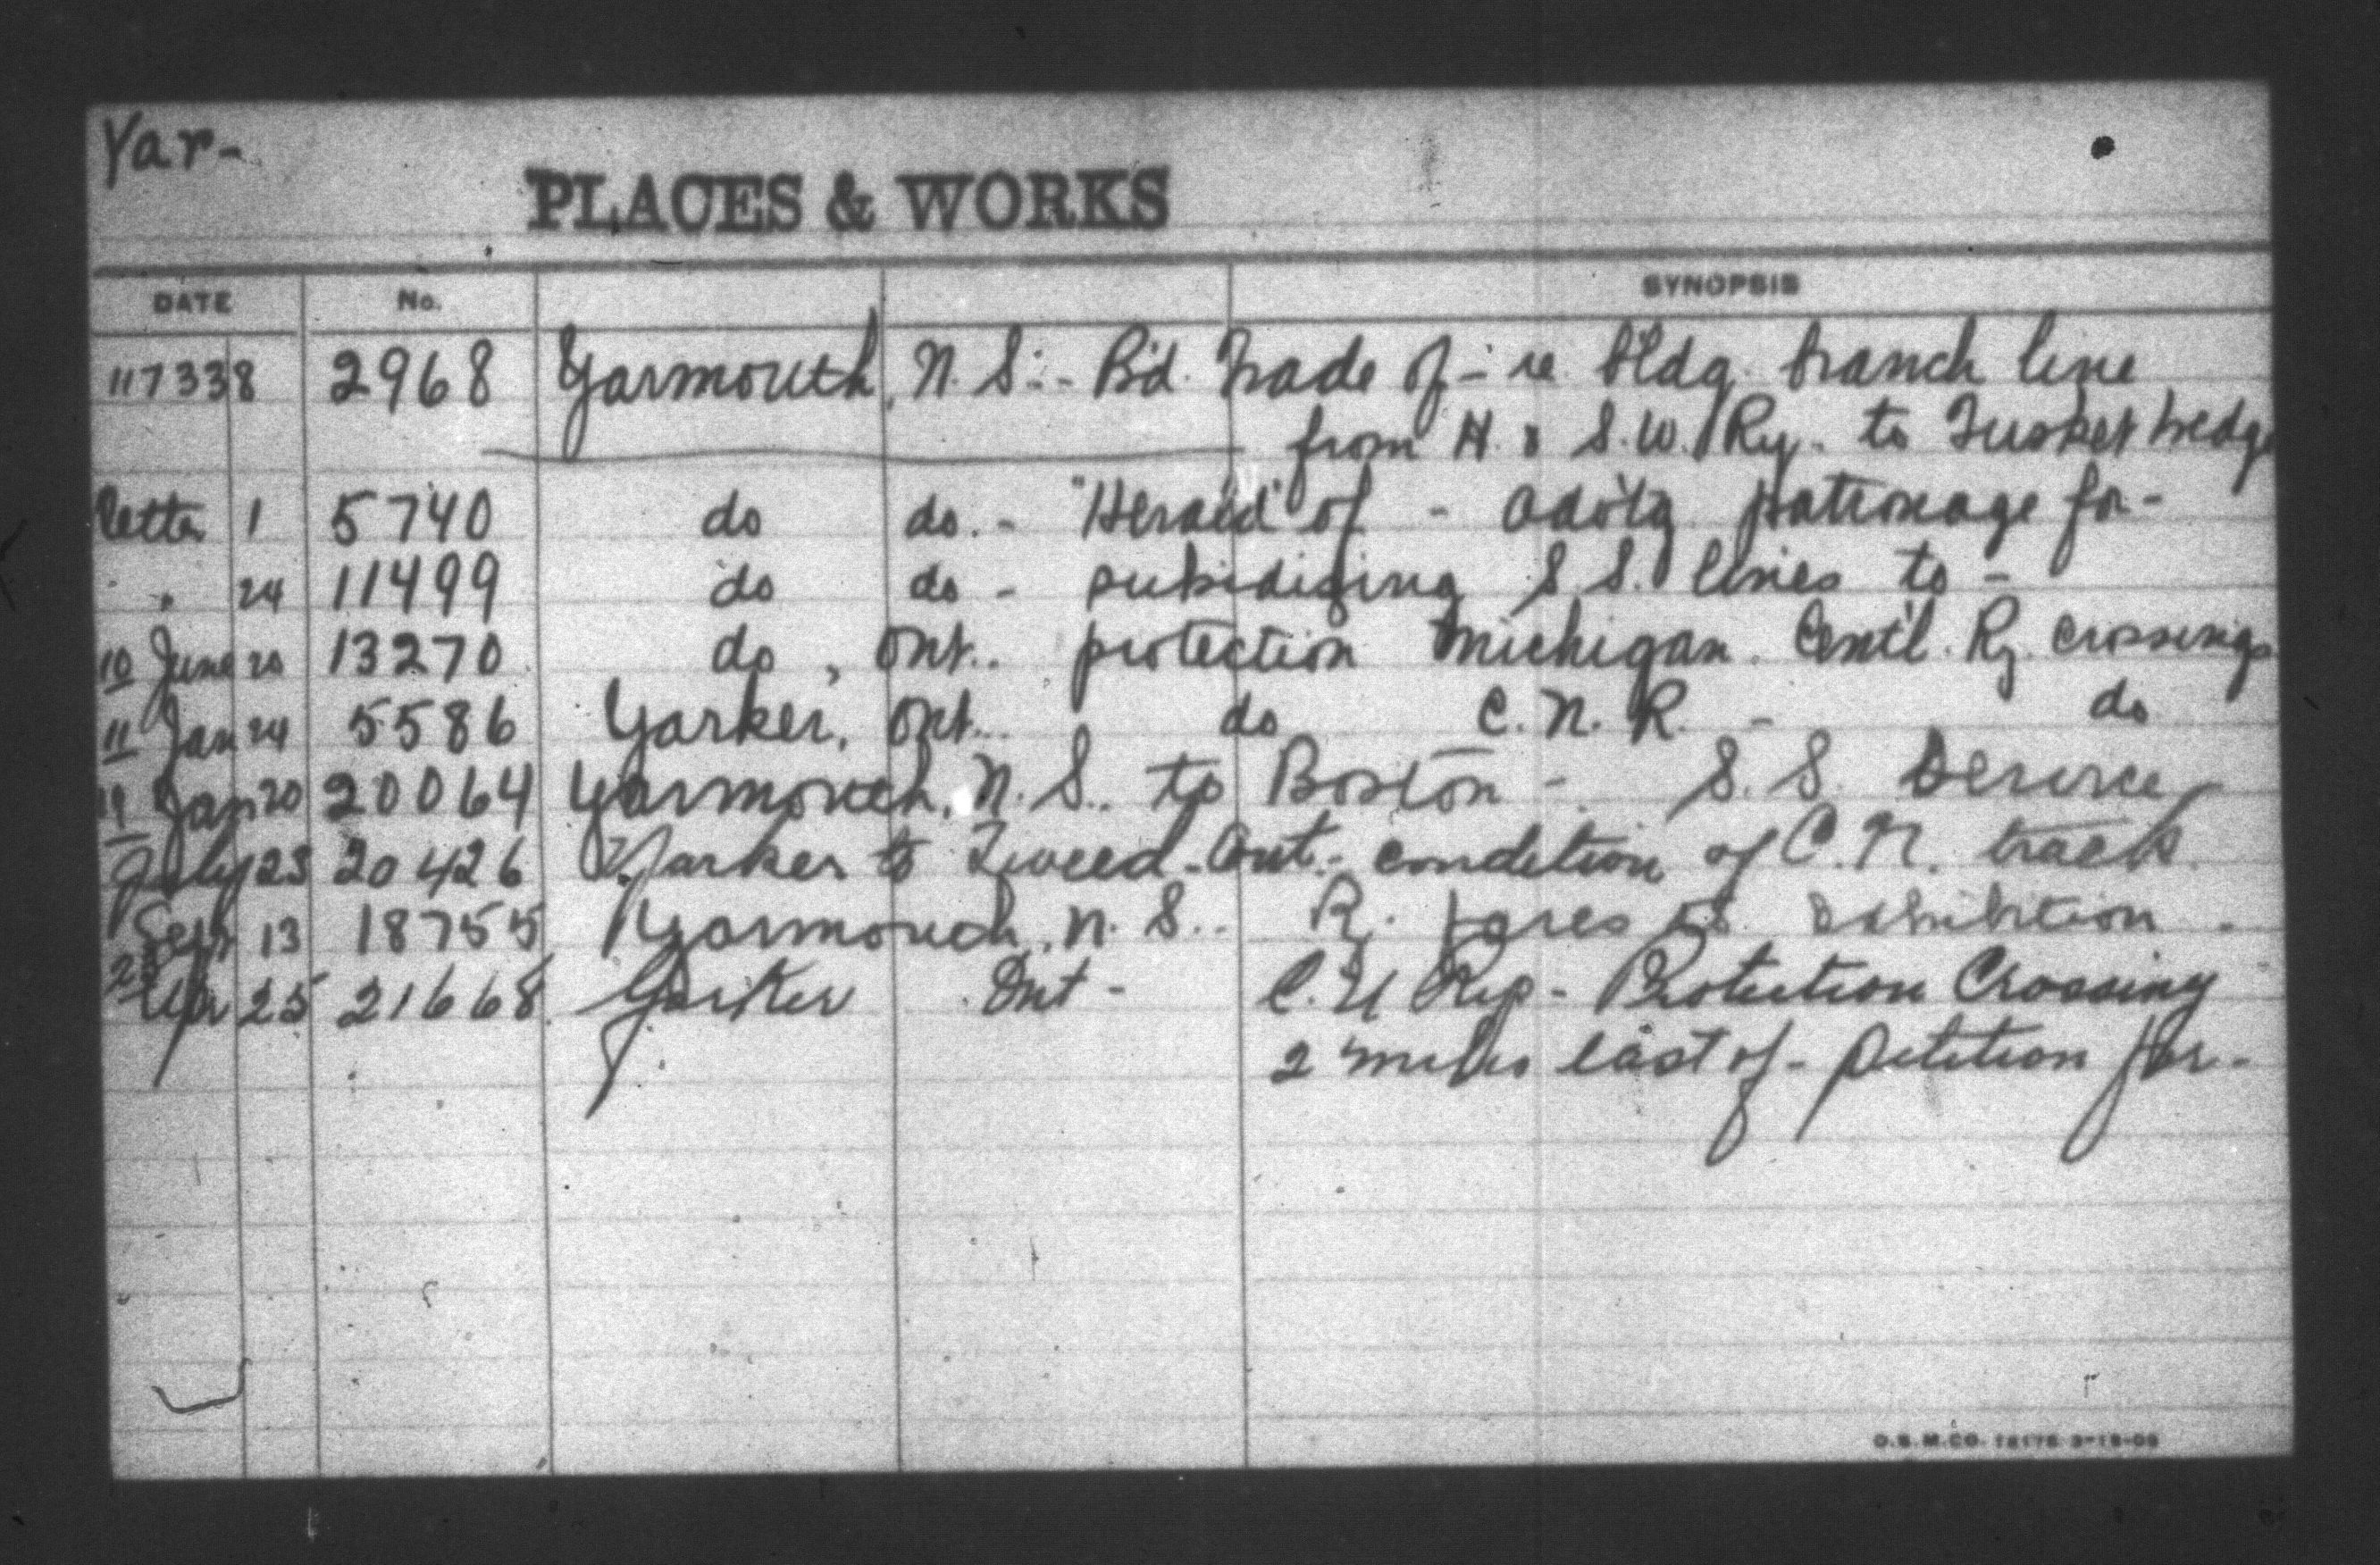 Yar-
PLACES & WORKS
DATE No. SYNOPSIS
117338 2968 Yarmouth, N.S.- Bd. Trade of - re bldg. branch line
from H. & S.W. Ry. to Tusket Wedge
letter 1 5740 do do. - "Herald" of - advtg patronage for -
" 24 11499 do do - subsidizing S.S. lines to -
10 June 20 13270 do, Ont.. protection Michigan Centl. Ry. crossings
11 Jan 24 5586 Yarker, Ont.. do C.N.R. - do
19 Jan 20 20064 Yarmouth, N.S.. to Boston - S.S. Service
July 23 20426 Yarker to Tweed - Ont - condition of C.N. track.
Sept 13 18755 Yarmouth, N.S.. R. fares to exhibition.
25 Apr 25 21668 Yarker Ont - C.N Rys - Protection Crossing
2 miles East of - Petition for -